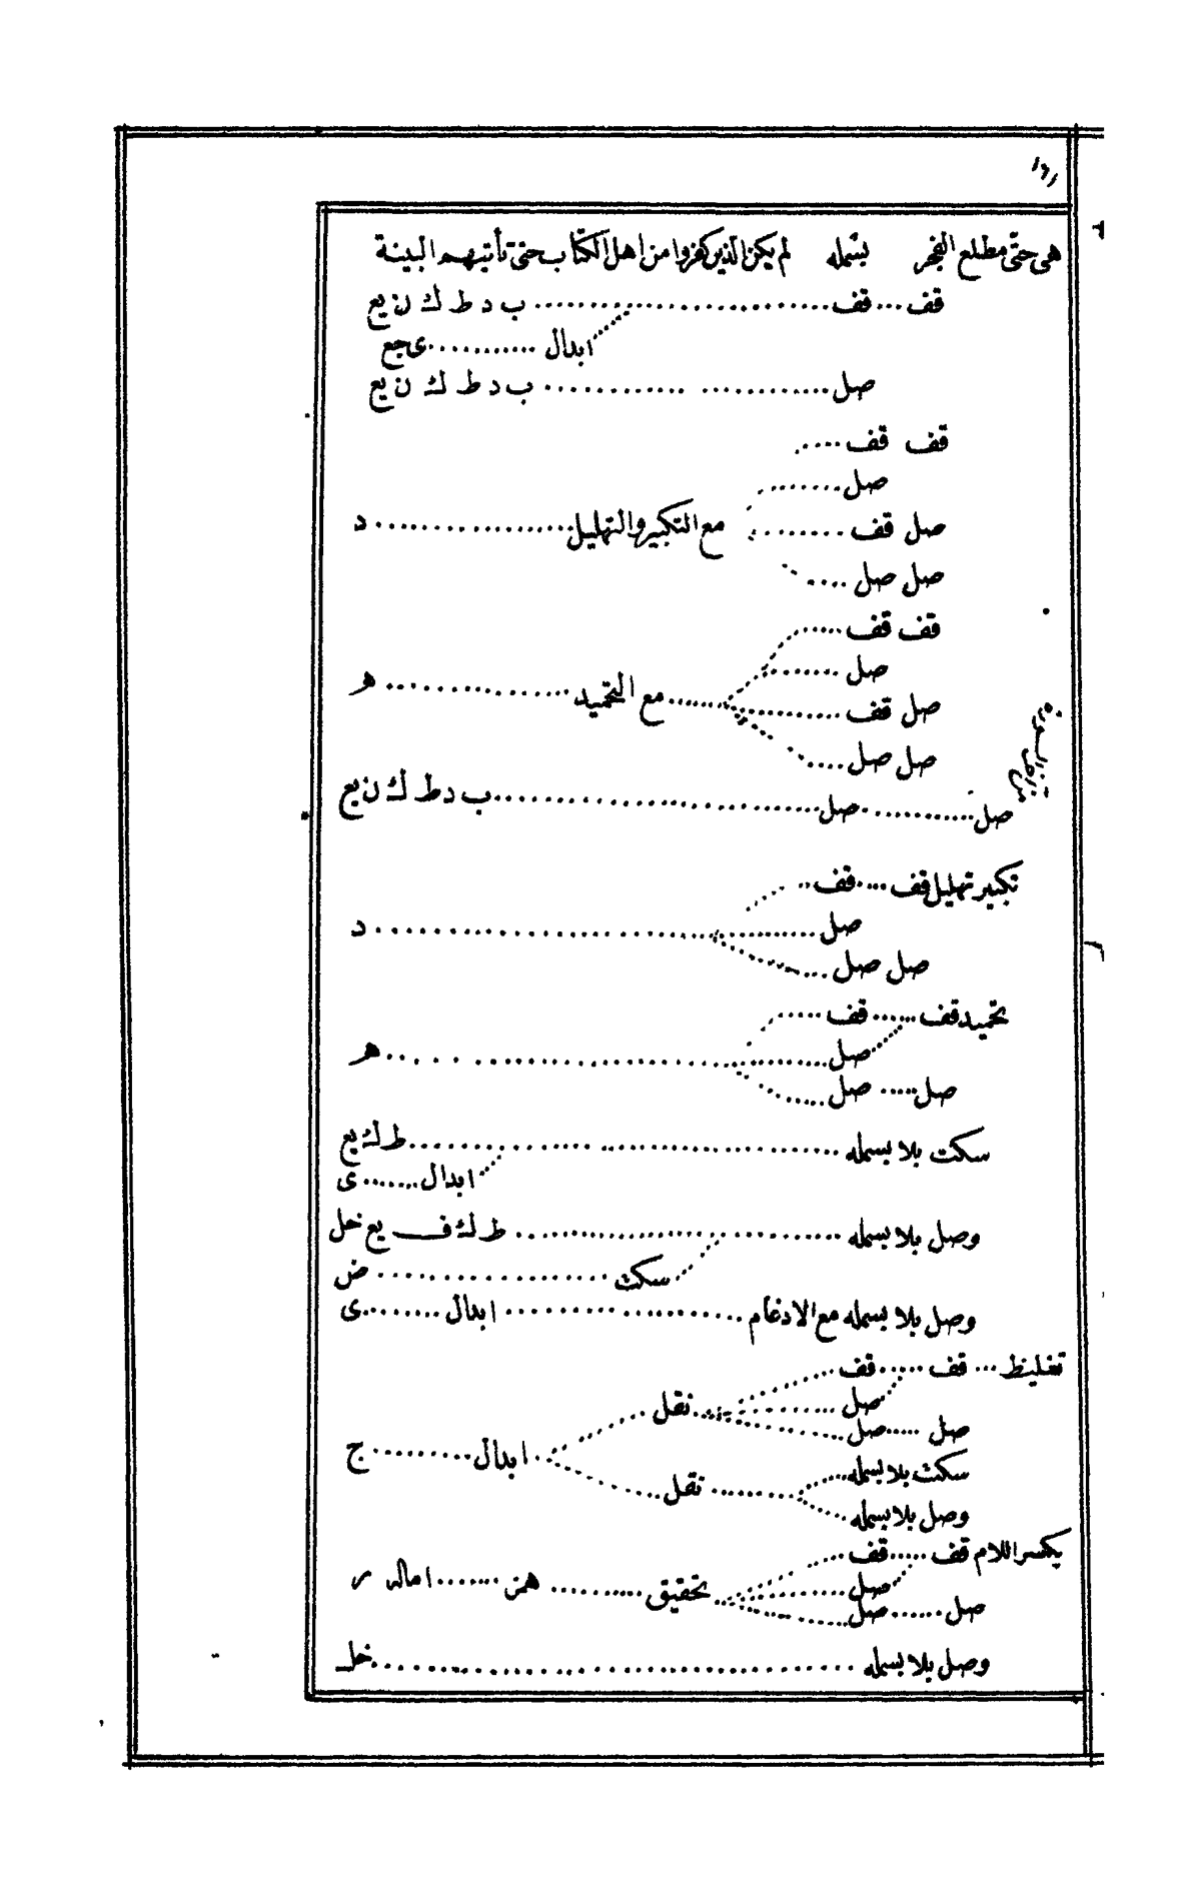 ١٦١
هى حتى مطلع الفجر بسمله لم يكن الذين كفروا من اهل الكتاب حتى تأتيهم البينة
قف ... قف ........ ب د ط ك ن يع
ابدال ........ ى جع
صل ........ ب د ط ك ن يع
قف قف .....
صل ........
صل قف ........ مع التكبير والتهليل ........ د
صل صل .....
قف قف .....
صل ........
صل قف ........ مع التحميد ........ ه
صل صل .....
صل ........ صل ........ ب د ط ك ن يع
تكبير تهليل قف .... قف ...
صل ........ د
صل صل .....
تحميد قف ...... قف .....
صل ........ ه
صل ..... صل .....
سكت بلا بسمله ........ ط ك يع
ابدال ....... ى
وصل بلا بسمله ........ ط ك ف يع خل
سكت ........ ض
وصل بلا بسمله مع الادغام ........ ابدال ........ ى
تغليظ ... قف ...... قف
صل ........ نقل
صل ..... صل
ابدال ........ ج
سكت بلا بسمله
وصل بلا بسمله ........ نقل
بكسر اللام قف ..... قف
صل ........ تحقيق ........ همز ....... اماله ر
صل ...... صل
وصل بلا بسمله ........ خل